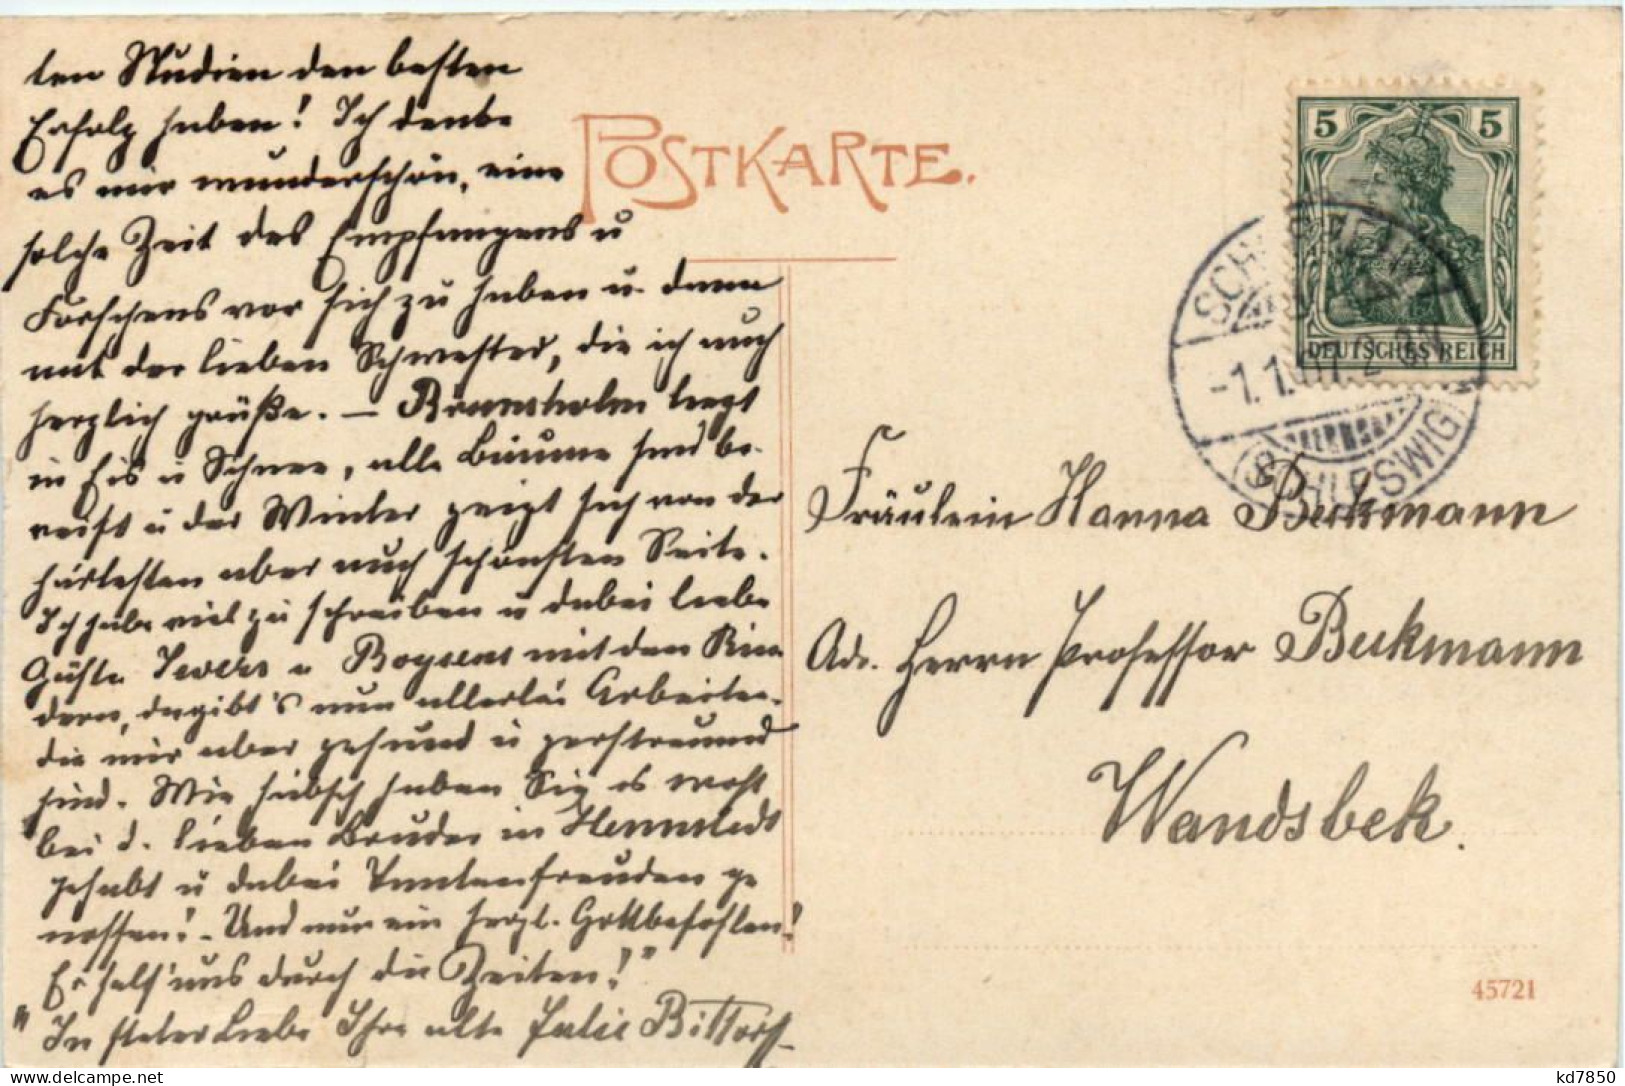 ten Studien den besten
Erfolg haben! Ich denke
es mir wunderschön, eine
solche Zeit des Empfangens u
Forschens vor sich zu haben u. dann
mit der lieben Schwester, die ich auch
herzlich grüße. — Brunsholm liegt
in Eis u Schnee, alle Bäume sind be-
reift u der Winter zeigt sich von der
härtesten aber auch schönsten Seite.
Ich habe viel zu schreiben u dabei liebe
Gäste Sievers u Boysens mit den Kin
dern, da gibt's nun allerlei Arbeiten,
die mir aber gesund u zerstreuend
sind. Wie hübsch haben Sie es wohl
bei d. lieben Bruder in Hennstedt
gehabt u dabei Tantenfreuden ge
nossen! - Und nun ein herzl. Gottbefohlen!
Er helf' uns durch die Zeiten!"
In steter Liebe Ihre alte Julie Bittorf
POSTKARTE.
5 5
DEUTSCHES REICH
SCHLESWIG
-1.1.07
Fräulein Hanna Beckmann
Adr. Herrn Professor Beckmann
Wandsbek.
45721
kd7850